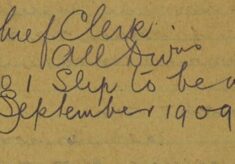 hief Clerk.
All Divns
g 1 Slip to be
September 1909